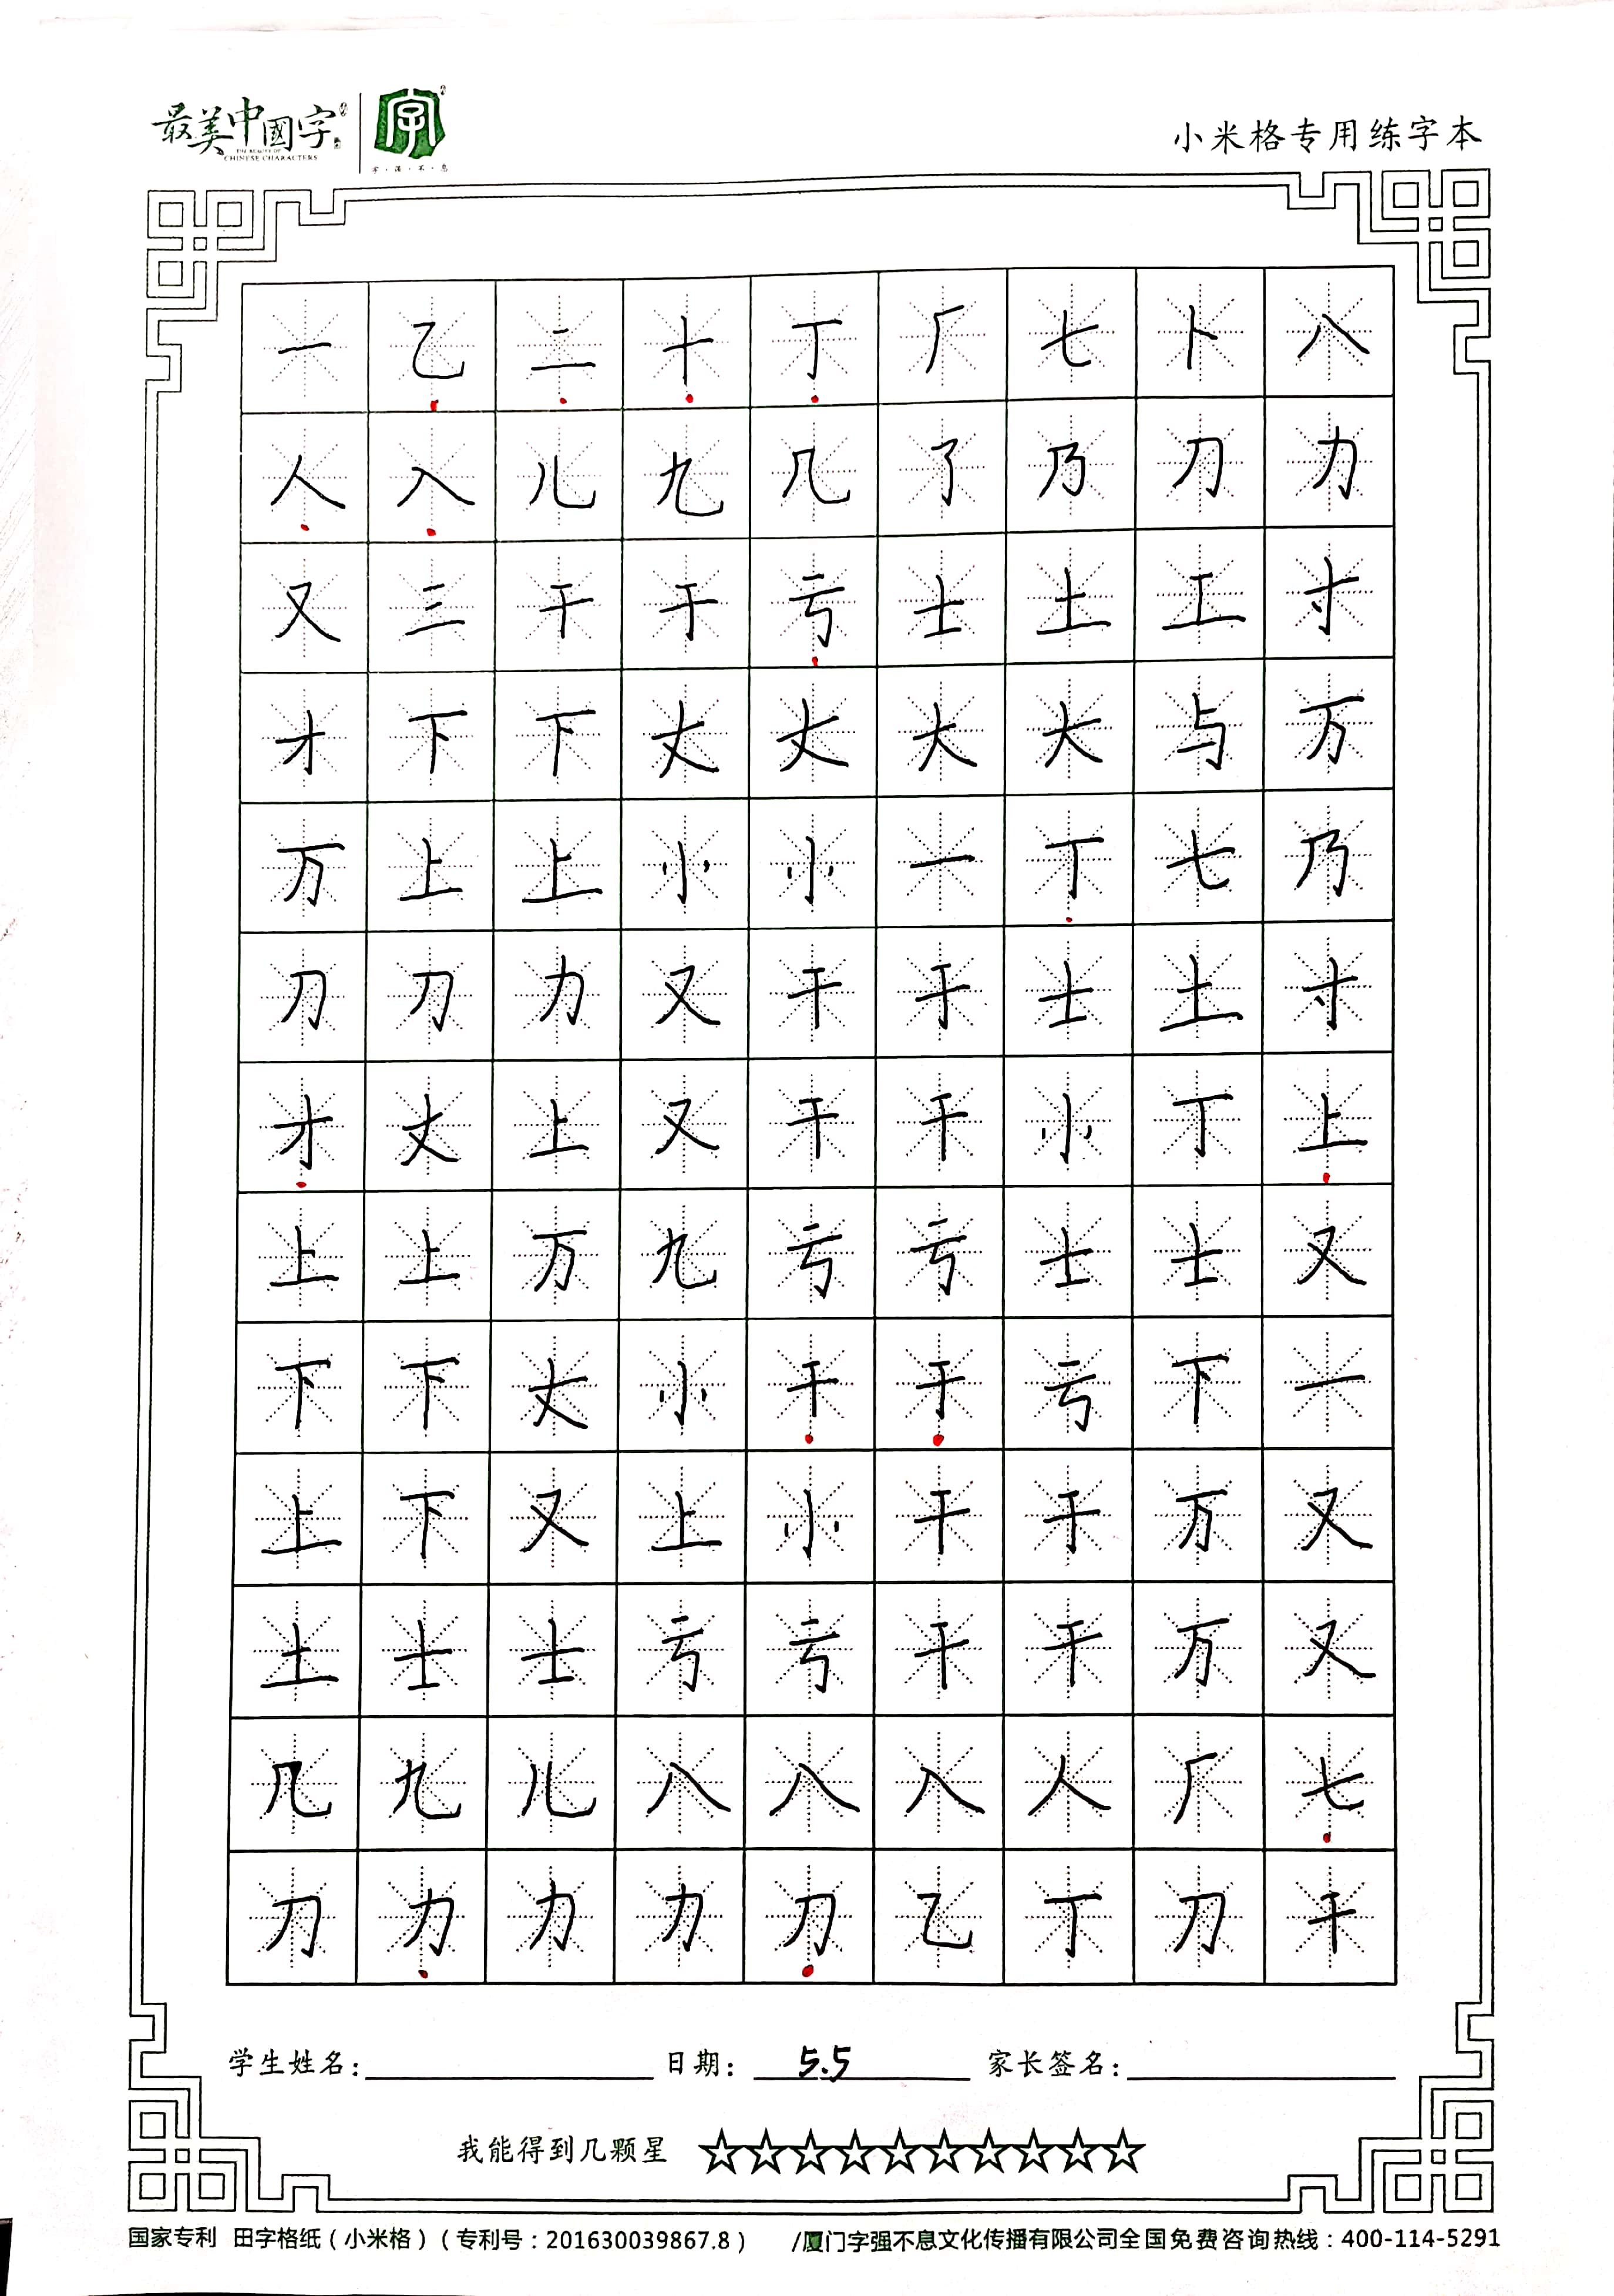 最美中國字
THE BEAUTY OF
CHINESE CHARACTERS
字
字·强·不·息
小米格专用练字本
一 乙 二 十 丁 厂 七 卜 八
人 入 儿 九 几 了 乃 刀 力
又 三 干 于 亏 士 土 工 寸
才 下 下 丈 丈 大 大 与 万
万 上 上 小 小 一 丁 七 乃
刀 刀 力 又 干 于 士 土 寸
才 丈 上 又 干 干 小 丁 上
上 上 万 九 亏 亏 士 士 又
下 下 丈 小 干 于 亏 下 一
上 下 又 上 小 干 于 万 又
土 士 士 亏 亏 干 干 万 又
几 九 儿 八 八 入 人 厂 七
刀 力 力 力 刀 乙 丁 刀 干
学生姓名: 日期: 5.5 家长签名:
我能得到几颗星 ☆☆☆☆☆☆☆☆☆☆
国家专利 田字格纸(小米格)(专利号:201630039867.8) /厦门字强不息文化传播有限公司全国免费咨询热线:400-114-5291